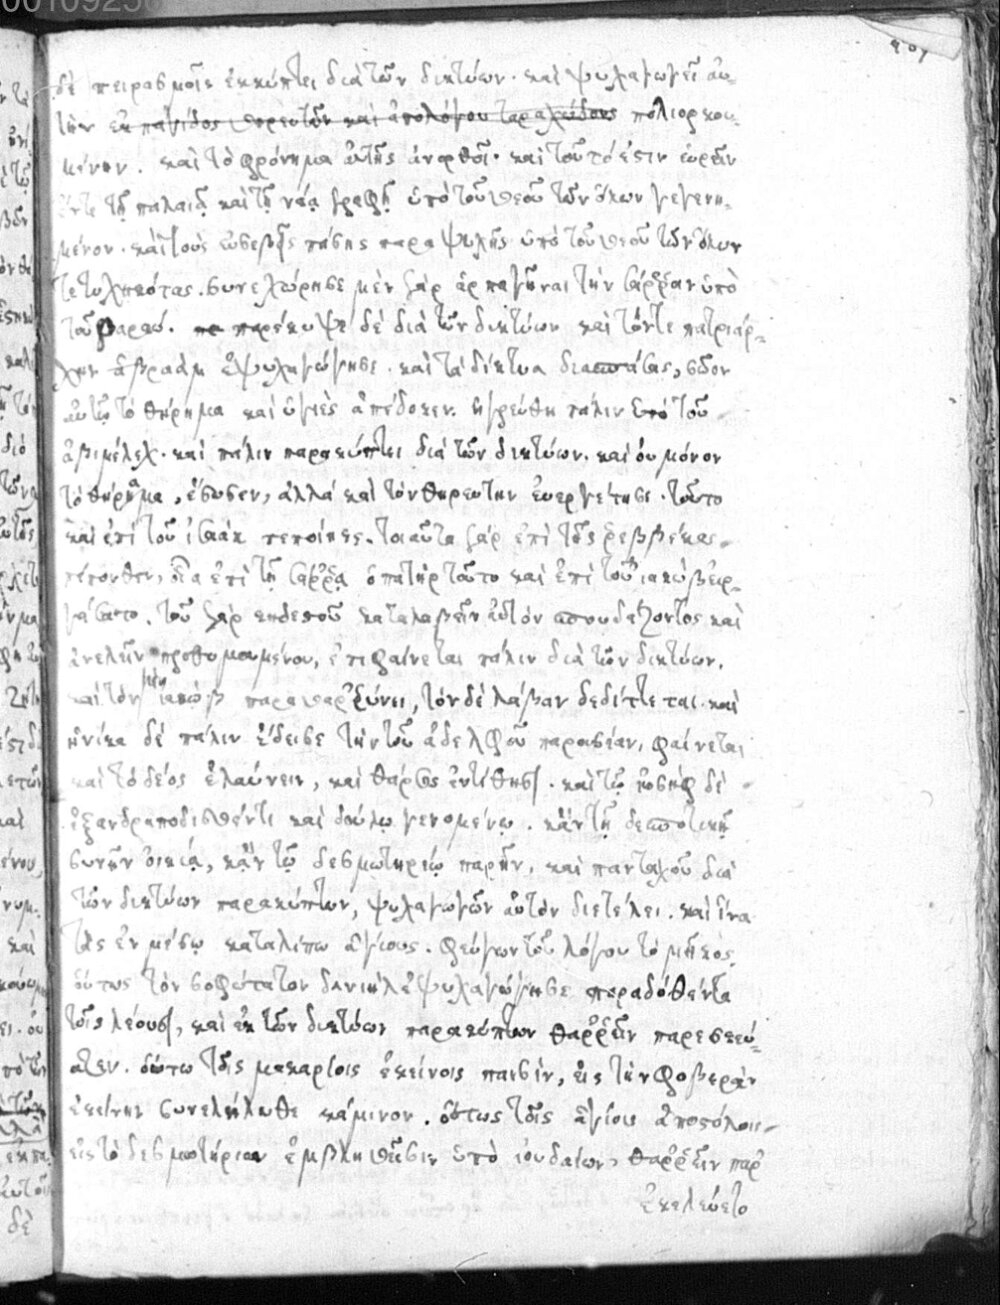 00109256
δὲ πειρασμοῖς ἐκκύπτει διὰ τῶν δικτύων. καὶ ψυχαγωγεῖ αὐ-
τὴν ἐκ παγίδος θηρευτῶν καὶ ἀπὸ λόγου ταραχώδους πολιορκου-
μένην. καὶ τὸ φρόνημα αὐτῆς ἀνορθοῖ. καὶ τοῦτό ἐστιν εὑρεῖν
ἔν τε τῇ παλαιᾷ καὶ τῇ νέᾳ γραφῇ ὑπὸ τοῦ θεοῦ τῶν ὅλων γεγενη-
μένον. καὶ τοὺς εὐσεβεῖς πάσης παραψυχῆς ὑπὸ τοῦ θεοῦ τῶν ὅλων
τετυχηκότας. συνεχώρησε μὲν γὰρ ἁρπαγῆναι τὴν σάρραν ὑπὸ
τοῦ φαραώ. παρέκυψε δὲ διὰ τῶν δικτύων καὶ τόν τε πατριάρ-
χην ἀβραὰμ ἐψυχαγώγησε. καὶ τὰ δίκτυα διασπάσας, ἔδον
αὐτῷ τὸ θήρημα καὶ ὑγιὲς ἀπέδωκεν. ἠγρεύθη πάλιν ὑπὸ τοῦ
ἀβιμέλεχ. καὶ πάλιν παρακύπτει διὰ τῶν δικτύων. καὶ οὐ μόνον
τὸ θήραμα, ἔσωσεν, ἀλλὰ καὶ τὸν θηρευτὴν εὐεργέτησε. τοῦτο
καὶ ἐπὶ τοῦ ἰσαὰκ πεποίηκε. τοιαῦτα γὰρ ἐπὶ τῆς ῥεββέκας
πέπονθεν, οἷα ἐπὶ τῇ σάρρᾳ ὁ πατὴρ τοῦτο καὶ ἐπὶ τοῦ ἰακὼβ εἰρ-
γάσατο. τοῦ γὰρ κηδεστοῦ καταλαβεῖν αὐτὸν σπουδάζοντος καὶ
ἀνελεῖν προθυμουμένου, ἐπιφαίνεται πάλιν διὰ τῶν δικτύων.
καὶ τὸν μὲν ἰακὼβ παραθαρρύνει, τὸν δὲ λάβαν δεδίττεται. καὶ
ἡνίκα δὲ πάλιν ἔδεισε τὴν τοῦ ἀδελφοῦ παρουσίαν, φαίνεται
καὶ τὸ δέος ἐλαύνειν, καὶ θάρσος ἐντίθησι. καὶ τῷ ἰωσὴφ δὲ
ἐξανδραποδισθέντι καὶ δούλῳ γενομένῳ. κἀν τῇ δεσποτικῇ
συνῆν οἰκίᾳ, κἀν τῷ δεσμωτηρίῳ παρῆν, καὶ πανταχοῦ διὰ
τῶν δικτύων παρακύπτων, ψυχαγωγῶν αὐτὸν διετέλει. καὶ ἵνα
τοὺς ἐν μέσῳ καταλίπω ἁγίους. φεύγων τοῦ λόγου τὸ μῆκος
οὕτως τὸν σοφώτατον δανιὴλ ἐψυχαγώγησε παραδοθέντα
τοῖς λέουσι, καὶ ἐκ τῶν δικτύων παρακύπτων θαρρεῖν παρεσκεύ-
αζεν. οὕτω τοῖς μακαρίοις ἐκείνοις παισὶν, εἰς τὴν φοβερὰν
ἐκείνην συνεληλυθε κάμινον. οὕτως τοῖς ἁγίοις ἀποστόλοις
εἰς τὸ δεσμωτήριον ἐμβληθεῖσιν ὑπὸ ἰουδαίων, θαρρεῖν παρ
ἐκελεύετο